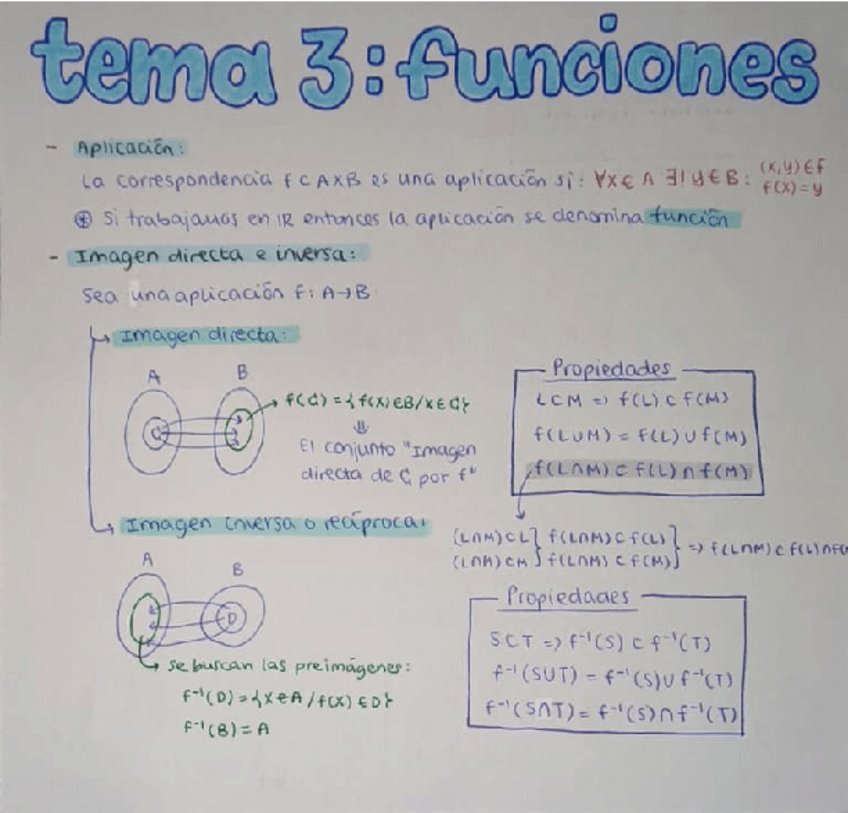 tema 3: funciones
- Aplicación:
La correspondencia f ⊂ A×B es una aplicación si: ∀x ∈ A ∃! y ∈ B: (x,y) ∈ f
f(x) = y
⊛ Si trabajamos en IR entonces la aplicación se denomina función
- Imagen directa e inversa:
Sea una aplicación f: A→B
↳ Imagen directa:
A B
C
f(C) = {f(x) ∈ B / x ∈ C}
⇓
El conjunto "Imagen
directa de C por f"
Propiedades
L ⊂ M => f(L) ⊂ f(M)
f(L∪M) = f(L) ∪ f(M)
f(L∩M) ⊂ f(L) ∩ f(M)
(L∩M) ⊂ L } f(L∩M) ⊂ f(L) } => f(L∩M) ⊂ f(L)∩f(
(L∩M) ⊂ M } f(L∩M) ⊂ f(M) }
↳ Imagen inversa o recíproca:
A B
D
↳ se buscan las preimágenes:
f⁻¹(D) = {x ∈ A / f(x) ∈ D}
f⁻¹(B) = A
Propiedades
S ⊂ T => f⁻¹(S) ⊂ f⁻¹(T)
f⁻¹(S∪T) = f⁻¹(S) ∪ f⁻¹(T)
f⁻¹(S∩T) = f⁻¹(S) ∩ f⁻¹(T)